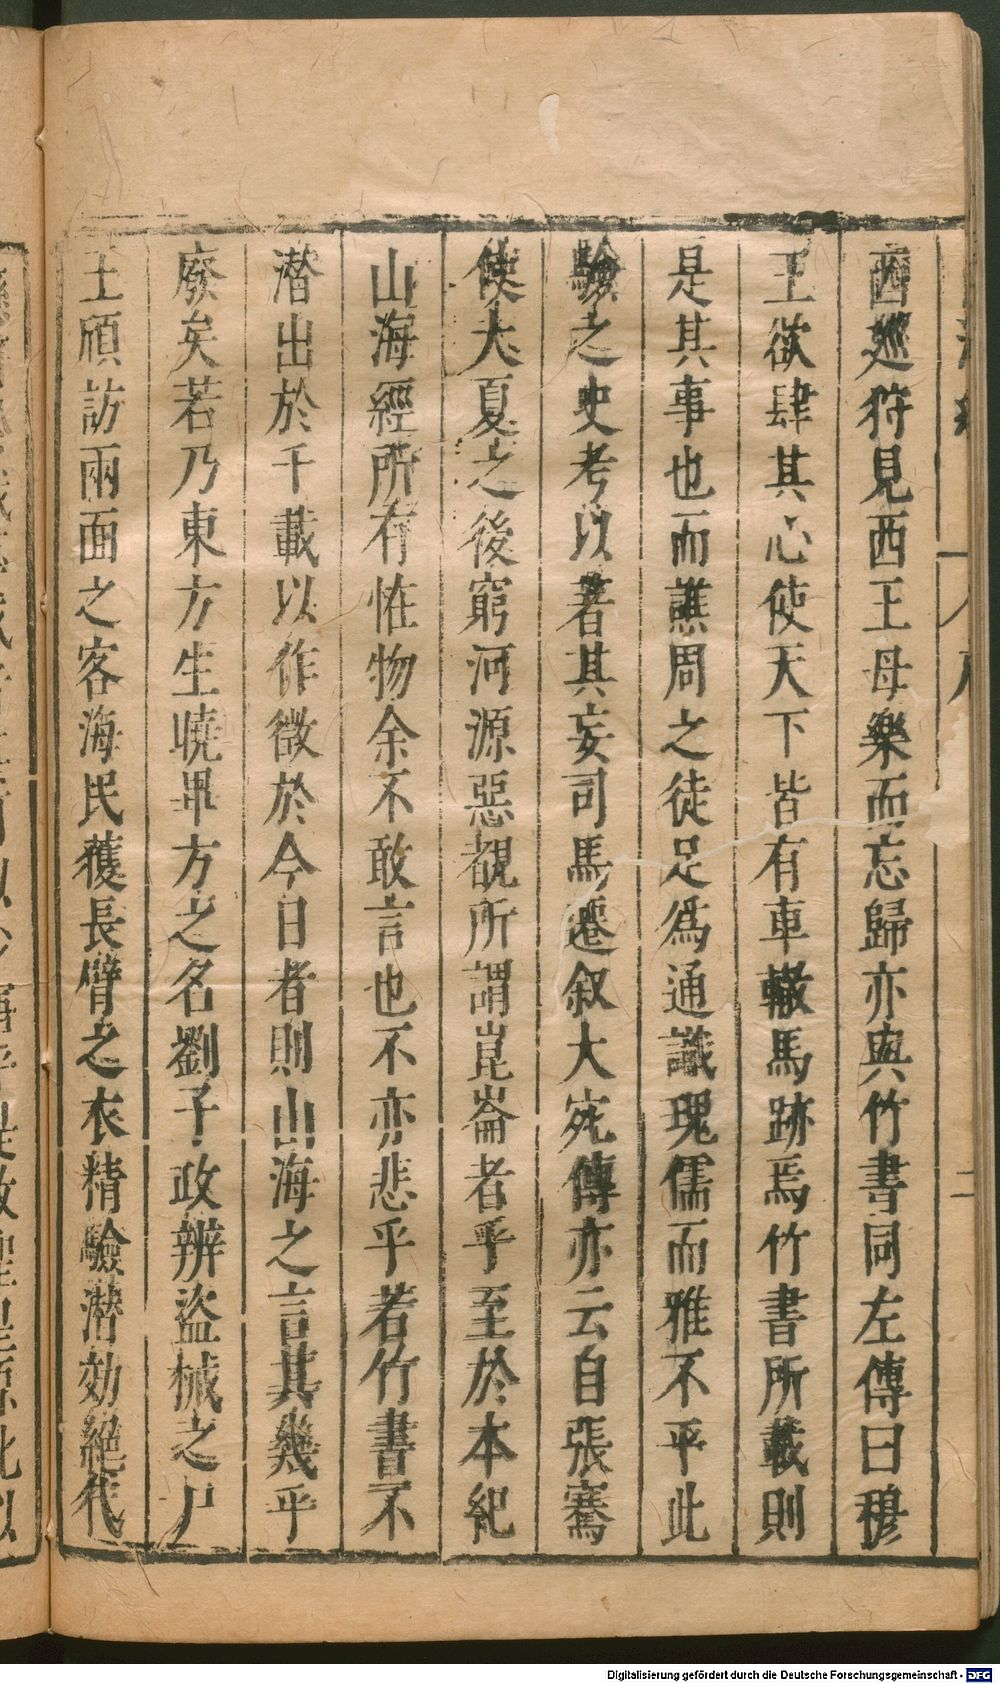 西廵狩見西王母樂而忘歸亦與竹書同左傳曰穆
王欲肆其心使天下皆有車轍馬跡焉竹書所載則
是其事也而譙周之徒足爲通識瑰儒而雅不平此
驗之史考以著其妄司馬遷叙大宛傳亦云自張騫
使大夏之後窮河源惡覩所謂崑崙者乎至於本紀
山海經所有恠物余不敢言也不亦悲乎若竹書不
潜出於千載以作徵於今日者則山海之言其幾乎
廢矣若乃東方生曉畢方之名劉子政辨盜械之尸
王頎訪兩面之客海民獲長臂之衣精驗潜効絕代
Digitalisierung gefördert durch die Deutsche Forschungsgemeinschaft - DFG